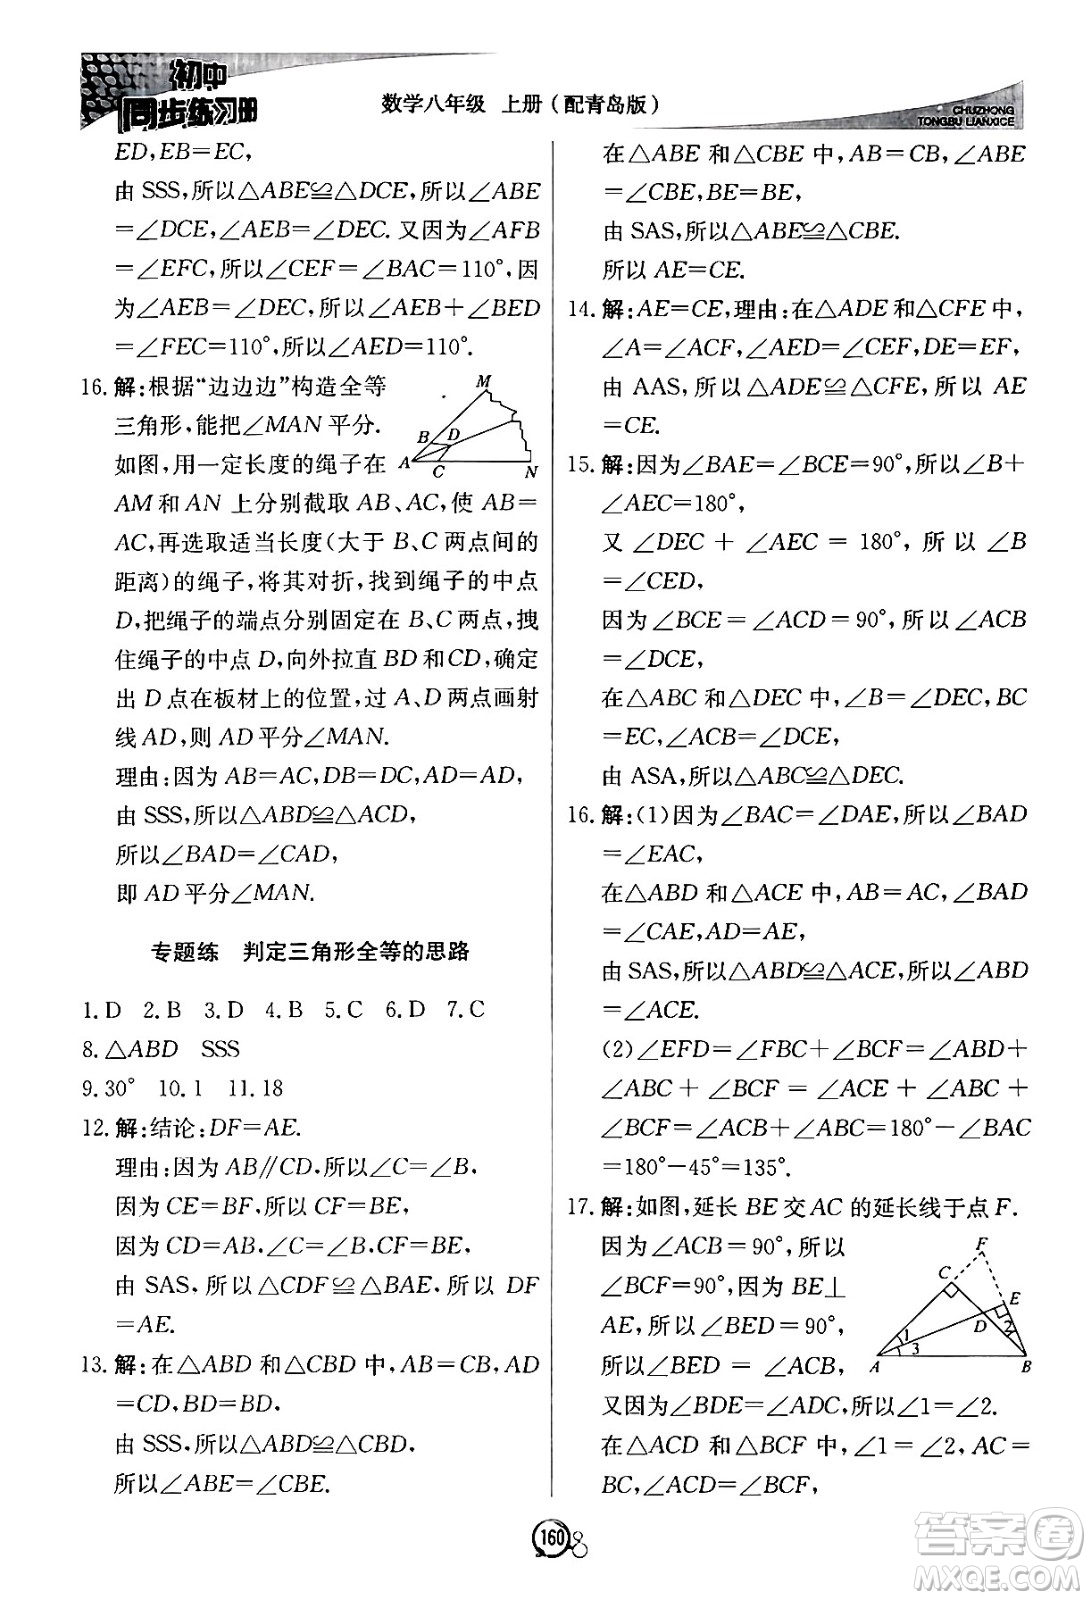 初中
同步练习册
数学八年级 上册(配青岛版)
CHUZHONG
TONGBU LIANXICE
ED,EB=EC,
由 SSS,所以△ABE≌△DCE,所以∠ABE
=∠DCE,∠AEB=∠DEC. 又因为∠AFB
=∠EFC,所以∠CEF=∠BAC=110°,因
为∠AEB=∠DEC,所以∠AEB+∠BED
=∠FEC=110°,所以∠AED=110°.
16. 解:根据“边边边”构造全等
三角形,能把∠MAN 平分.
如图,用一定长度的绳子在
AM 和 AN 上分别截取 AB、AC,使 AB=
AC,再选取适当长度(大于 B、C 两点间的
距离)的绳子,将其对折,找到绳子的中点
D,把绳子的端点分别固定在 B、C 两点,拽
住绳子的中点 D,向外拉直 BD 和 CD,确定
出 D 点在板材上的位置,过 A、D 两点画射
线 AD,则 AD 平分∠MAN.
理由:因为 AB=AC,DB=DC,AD=AD,
由 SSS,所以△ABD≌△ACD,
所以∠BAD=∠CAD,
即 AD 平分∠MAN.
M
B
D
A
C
N
专题练 判定三角形全等的思路
1. D 2. B 3. D 4. B 5. C 6. D 7. C
8. △ABD SSS
9. 30° 10. 1 11. 18
12. 解:结论:DF=AE.
理由:因为 AB∥CD,所以∠C=∠B,
因为 CE=BF,所以 CF=BE,
因为 CD=AB,∠C=∠B,CF=BE,
由 SAS,所以△CDF≌△BAE,所以 DF
=AE.
13. 解:在△ABD 和△CBD 中,AB=CB,AD
=CD,BD=BD,
由 SSS,所以△ABD≌△CBD,
所以∠ABE=∠CBE.
在△ABE 和△CBE 中,AB=CB,∠ABE
=∠CBE,BE=BE,
由 SAS,所以△ABE≌△CBE.
所以 AE=CE.
14. 解:AE=CE,理由:在△ADE 和△CFE 中,
∠A=∠ACF,∠AED=∠CEF,DE=EF,
由 AAS,所以△ADE≌△CFE,所以 AE
=CE.
15. 解:因为∠BAE=∠BCE=90°,所以∠B+
∠AEC=180°,
又∠DEC+∠AEC=180°,所以∠B
=∠CED,
因为∠BCE=∠ACD=90°,所以∠ACB
=∠DCE,
在△ABC 和△DEC 中,∠B=∠DEC,BC
=EC,∠ACB=∠DCE,
由 ASA,所以△ABC≌△DEC.
16. 解:(1)因为∠BAC=∠DAE,所以∠BAD
=∠EAC,
在△ABD 和△ACE 中,AB=AC,∠BAD
=∠EAC,AD=AE,
由 SAS,所以△ABD≌△ACE,所以∠ABD
=∠ACE.
(2)∠EFD=∠FBC+∠BCF=∠ABD+
∠ABC+∠BCF=∠ACE+∠ABC+
∠BCF=∠ACB+∠ABC=180°-∠BAC
=180°-45°=135°.
17. 解:如图,延长 BE 交 AC 的延长线于点 F.
因为∠ACB=90°,所以
∠BCF=90°,因为 BE⊥
AE,所以∠BED=90°,
所以∠BED=∠ACB,
又因为∠BDE=∠ADC,所以∠1=∠2.
在△ACD 和△BCF 中,∠1=∠2,AC=
BC,∠ACD=∠BCF,
F
C
E
D
2
1
3
A
B
160
答案卷
MXQE.COM